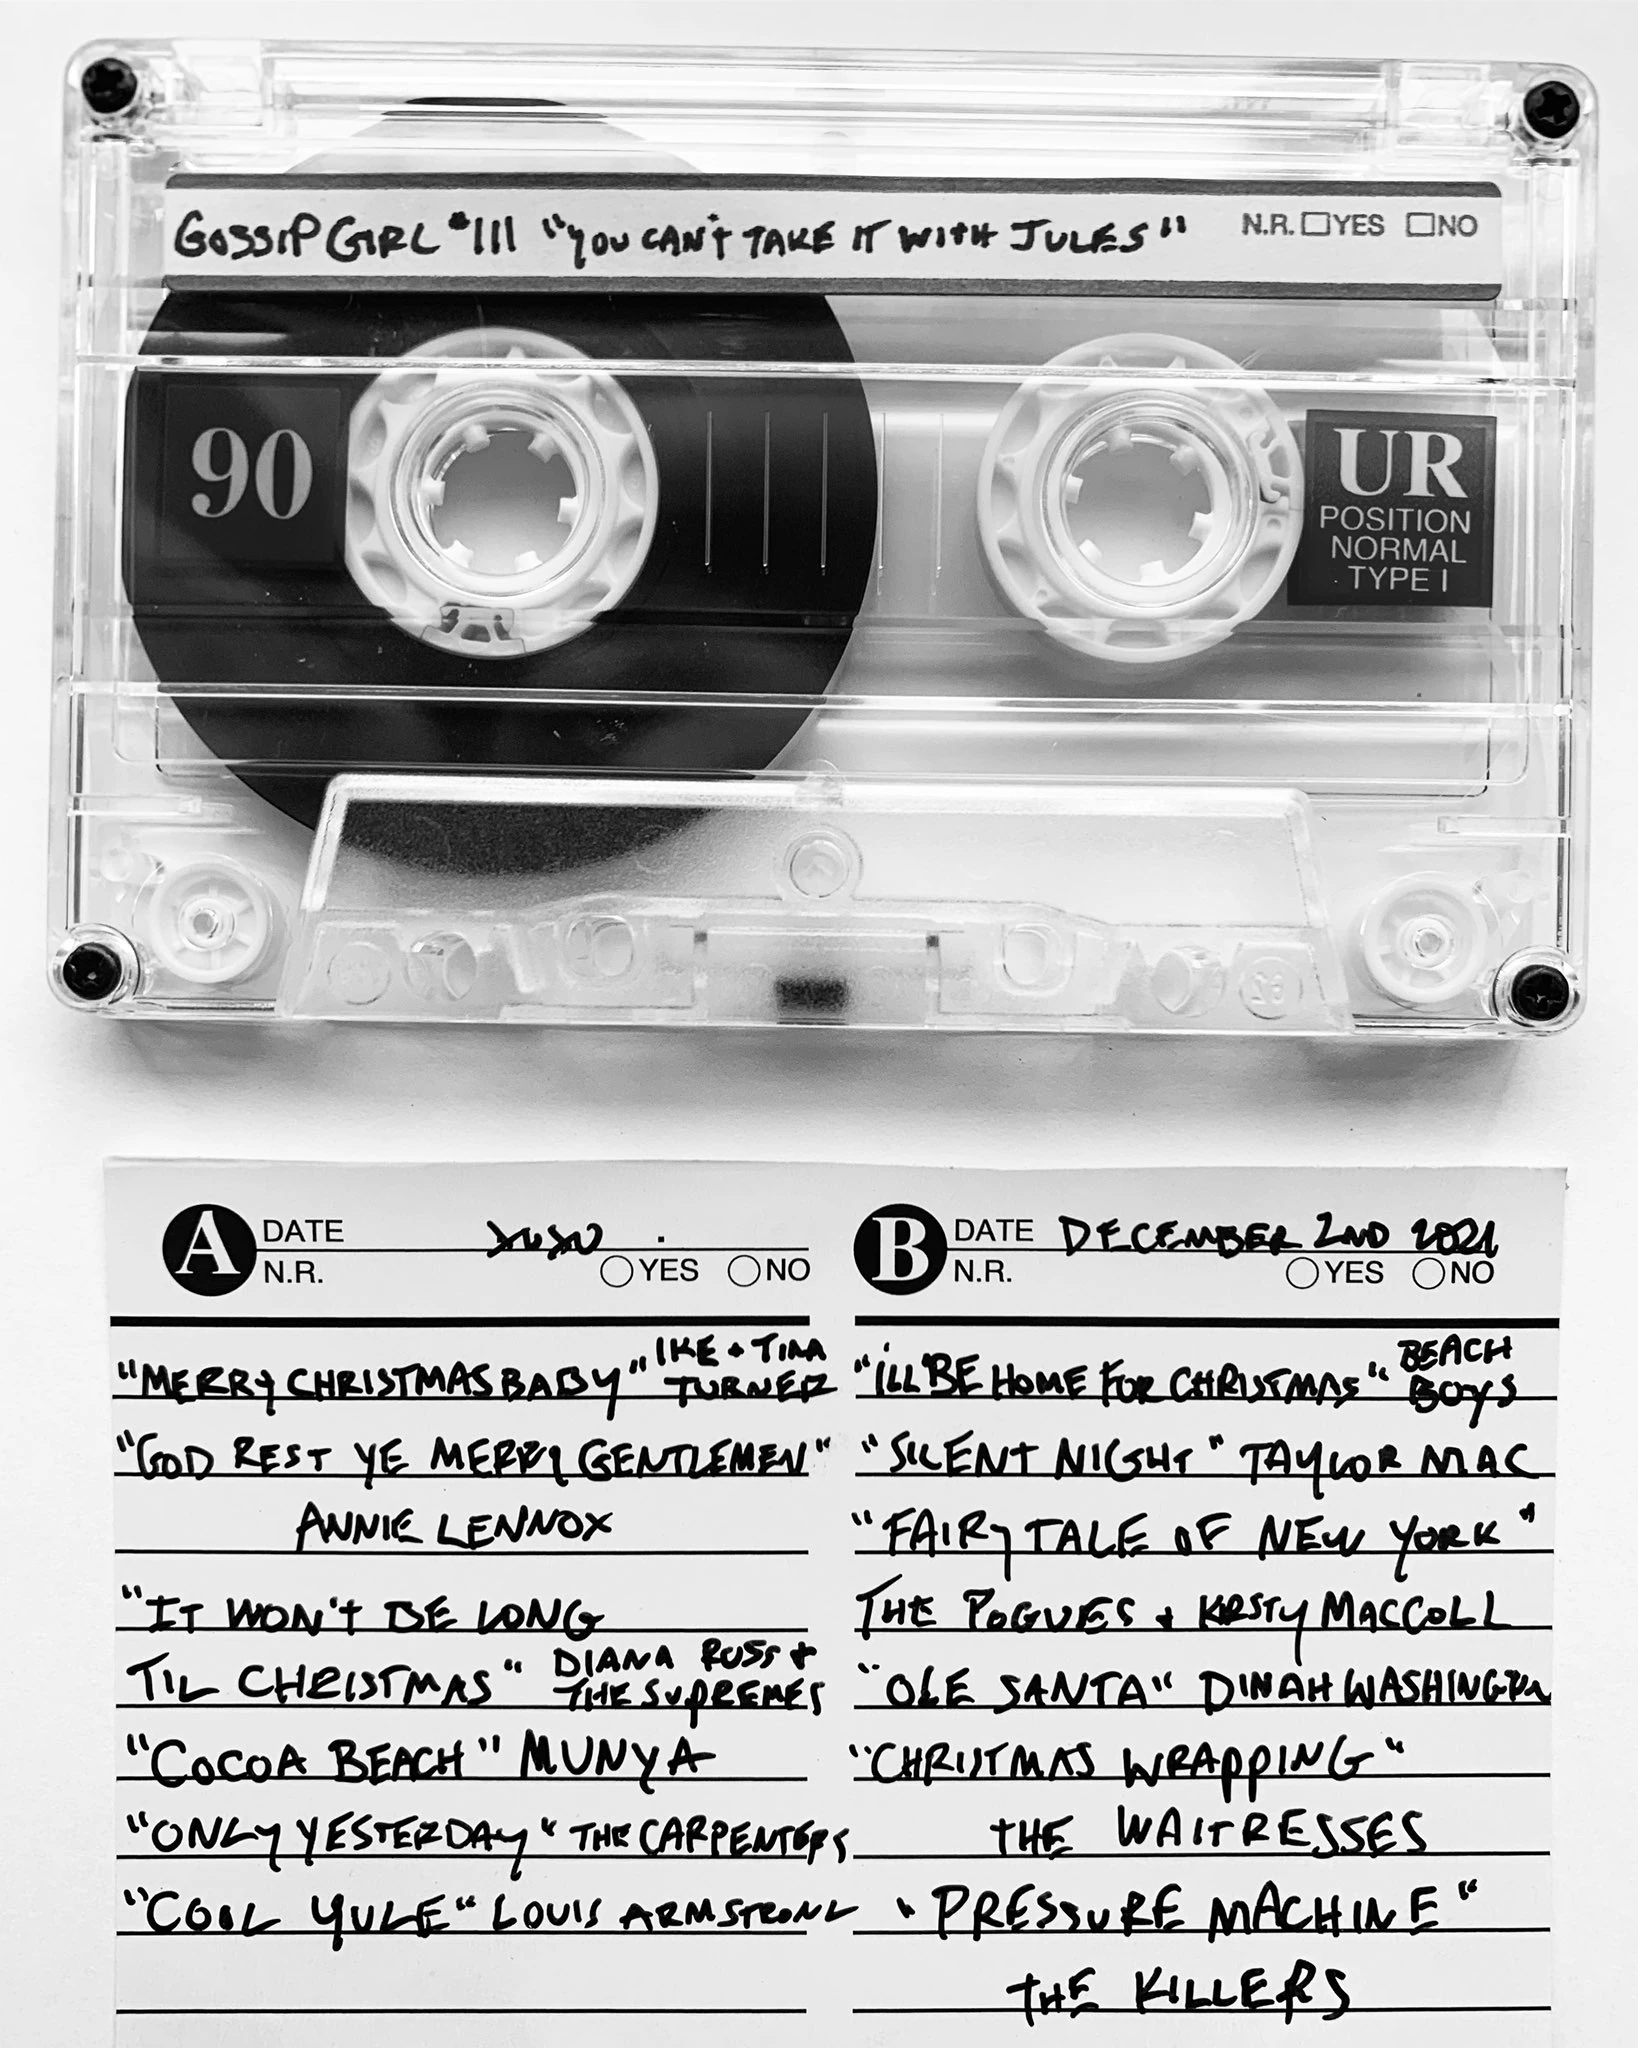 GOSSIP GIRL #111 "YOU CAN'T TAKE IT WITH JULES"
N.R. YES NO
90
UR
POSITION
NORMAL
TYPE I
A DATE xoxo .
N.R. YES NO
"MERRY CHRISTMAS BABY" IKE + TINA
TURNER
"GOD REST YE MERRY GENTLEMEN"
ANNIE LENNOX
"IT WON'T BE LONG
TIL CHRISTMAS" DIANA ROSS +
THE SUPREMES
"COCOA BEACH" MUNYA
"ONLY YESTERDAY" THE CARPENTERS
"COOL YULE" LOUIS ARMSTRONG
B DATE DECEMBER 2ND 2021
N.R. YES NO
"I'LL BE HOME FOR CHRISTMAS" BEACH
BOYS
"SILENT NIGHT" TAYLOR MAC
"FAIRYTALE OF NEW YORK"
THE POGUES + KIRSTY MACCOLL
"OLE SANTA" DINAH WASHINGTON
"CHRISTMAS WRAPPING"
THE WAITRESSES
"PRESSURE MACHINE"
THE KILLERS